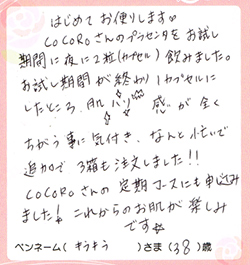 はじめてお便りします♡
COCOROさんのプラセンタをお試し
期間に夜に2粒(カプセル)飲みました。
お試し期間が終わり1カプセルに
したところ、肌ハリ感が全く
ちがう事に気付き、なんと忙いで
追加で3箱も注文しました!!
COCOROさんの定期コースにも申込み
ました! これからのお肌が楽しみ
です☆
ペンネーム( キラキラ )さま(38)歳